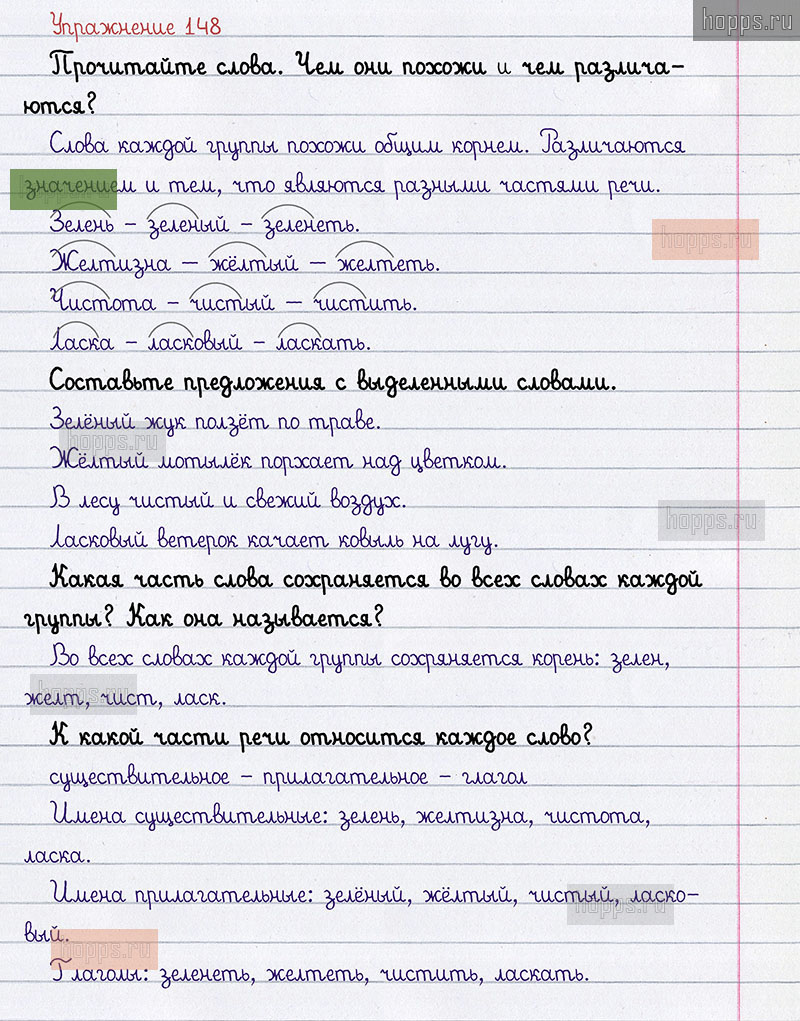 hopps.ru
Упражнение 148
Прочитайте слова. Чем они похожи и чем различа-
ются?
Слова каждой группы похожи общим корнем. Различаются
значением и тем, что являются разными частями речи.
hopps.ru
Зелень – зеленый – зеленеть.
hopps.ru
Желтизна – жёлтый – желтеть.
Чистота – чистый – чистить.
Ласка – ласковый – ласкать.
Составьте предложения с выделенными словами.
Зелёный жук ползёт по траве.
hopps.ru
Жёлтый мотылёк порхает над цветком.
В лесу чистый и свежий воздух.
hopps.ru
Ласковый ветерок качает ковыль на лугу.
Какая часть слова сохраняется во всех словах каждой
группы? Как она называется?
Во всех словах каждой группы сохряняется корень: зелен,
желт, чист, ласк.
hopps.ru
К какой части речи относится каждое слово?
существительное – прилагательное – глагол
Имена существительные: зелень, желтизна, чистота,
ласка.
Имена прилагательные: зелёный, жёлтый, чистый, ласко-
hopps.ru
вый.
hopps.ru
Глаголы: зеленеть, желтеть, чистить, ласкать.